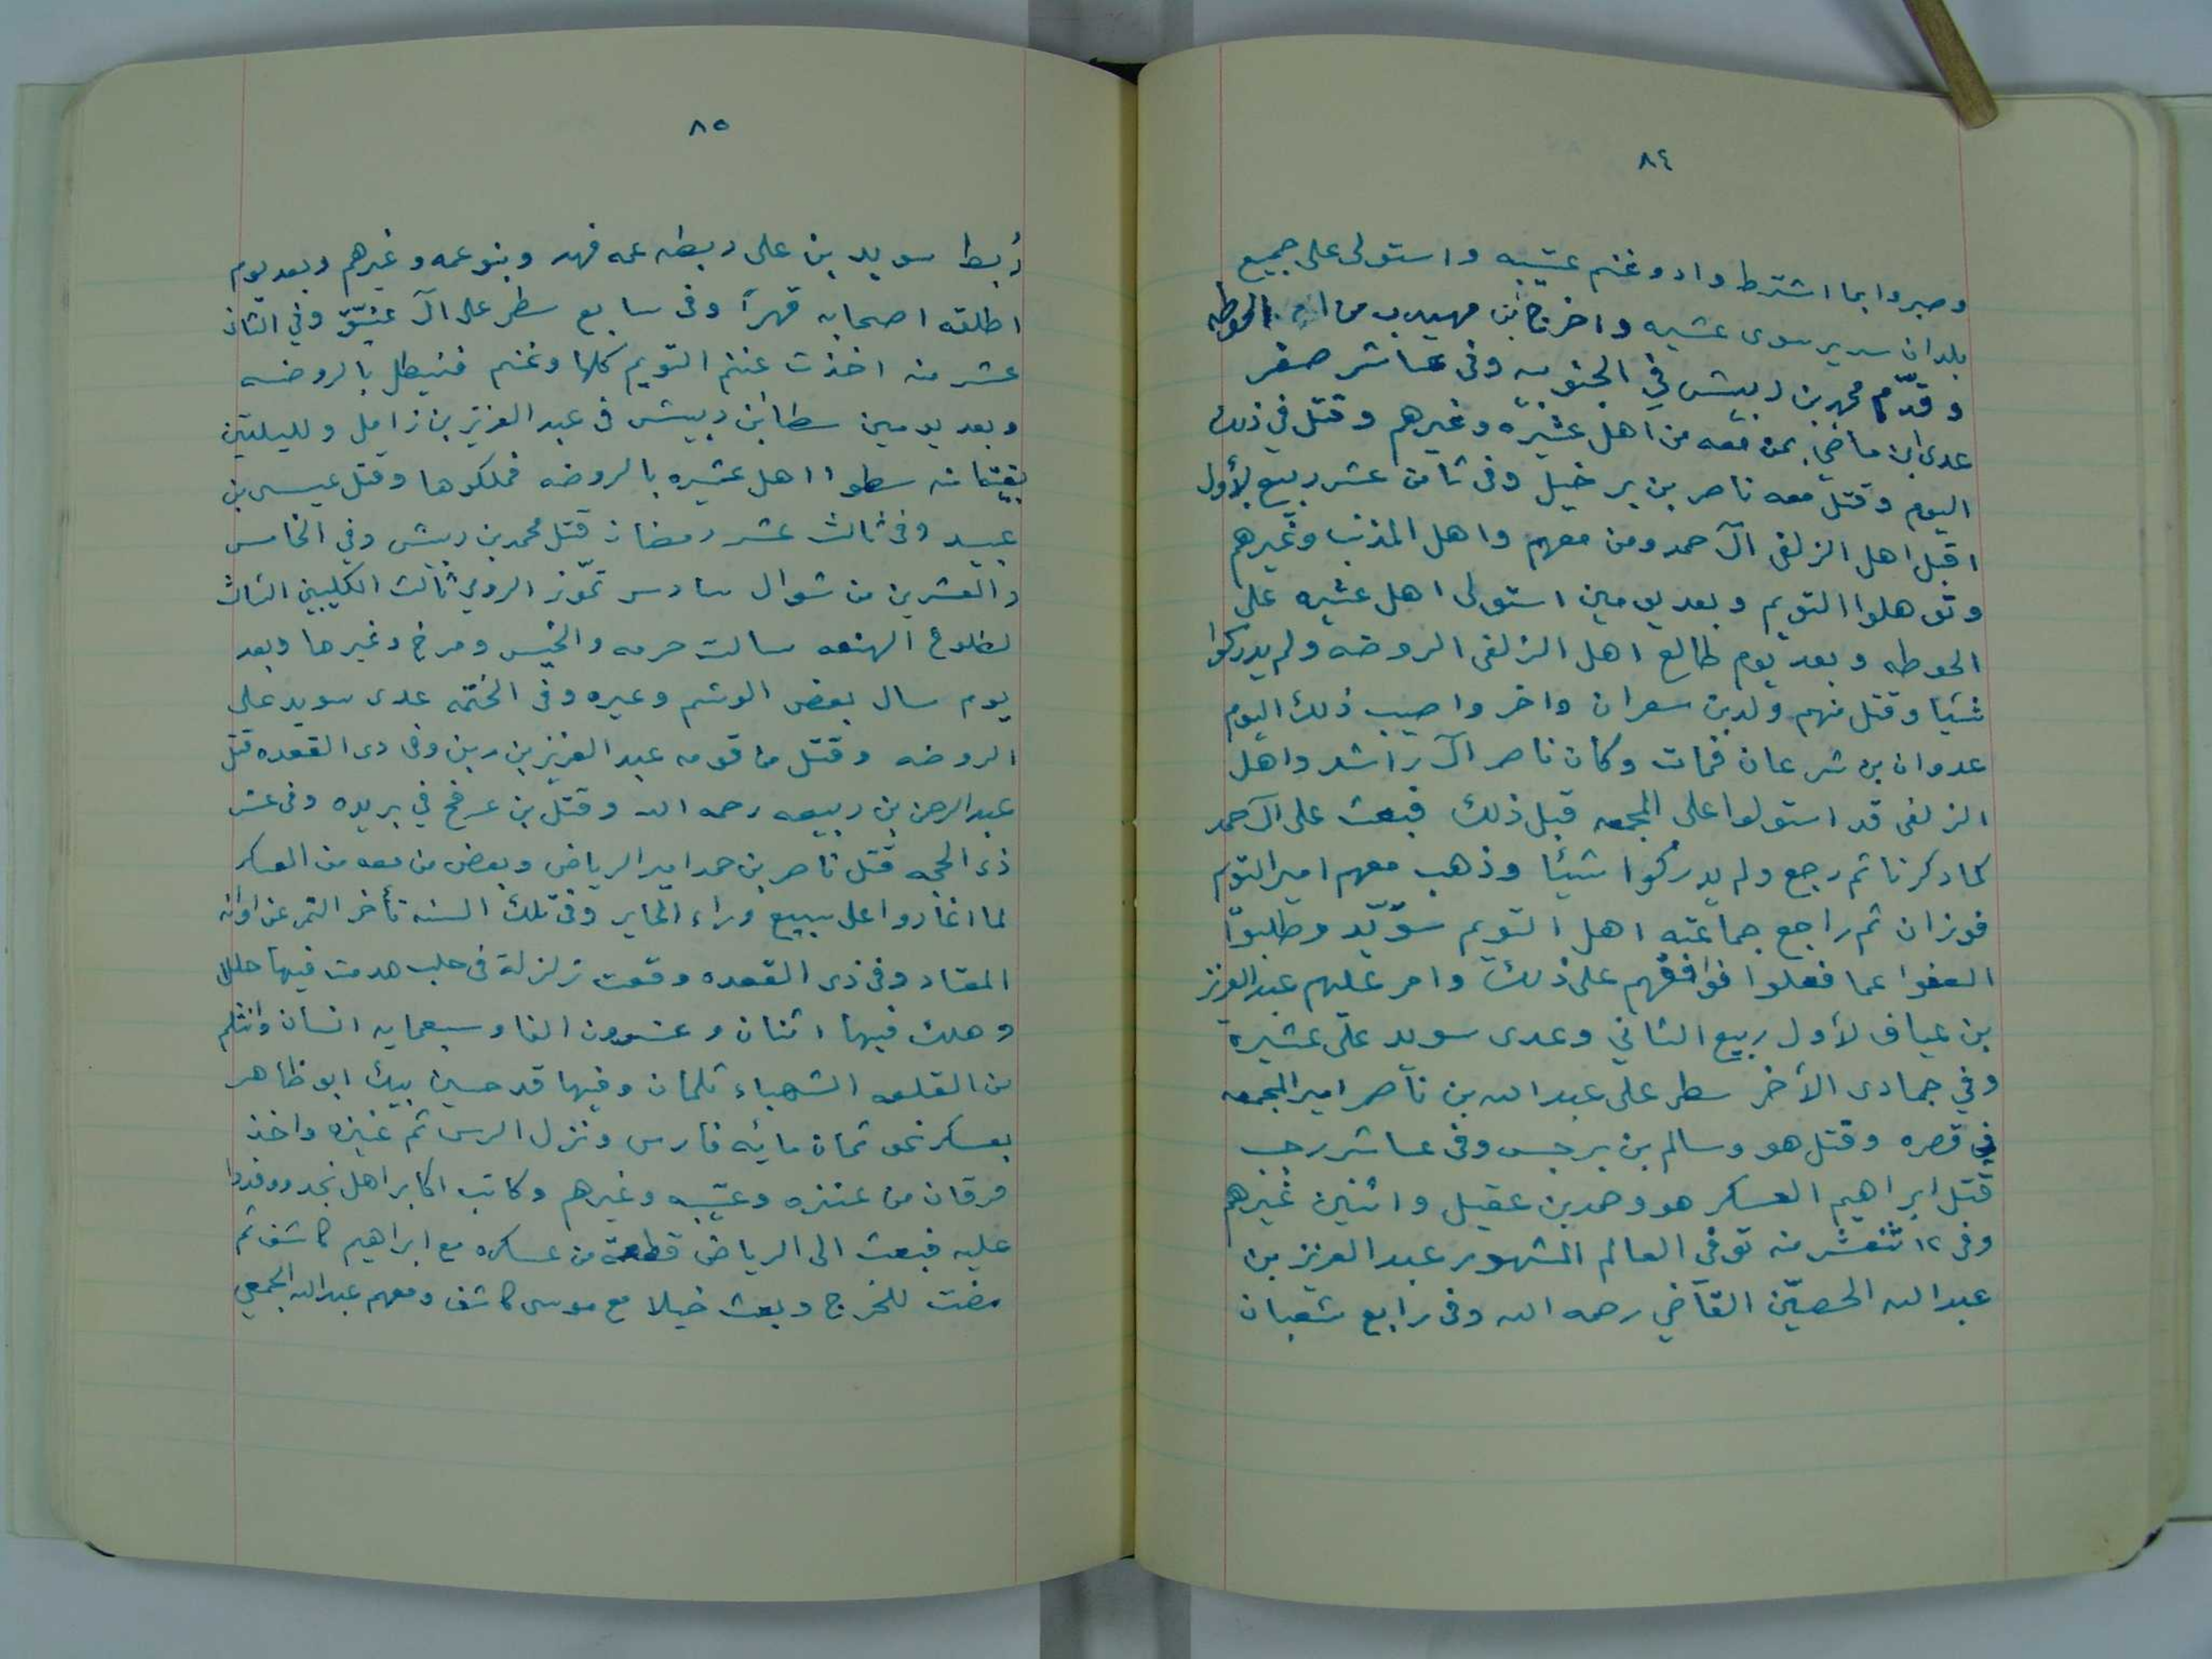 ٨٤
وصبروا بما اشترط وادوغنم عتيبه واستولى على جميع
بلدان سدير سوى عشيره واخرج بن مهيدب من الحوطه
وقدّم محمد بن ربيش في الجنوبيه وفى عاشر صفر
عدى ابن ماضي بمن معه من اهل عشيره وغيرهم وقتل في ذلك
اليوم وقتل معه ناصر بن برخيل وفى ثامن عشر ربيع لأول
اقبل اهل الزلفى آل حمد ومن معهم واهل المذنب وغيرهم
وتوهلوا التويم وبعد يومين استولى اهل عشيره على
الحوطه وبعد يوم طالع اهل الزلفى الروضه ولم يدركوا
شيئا وقتل منهم ولد بن سعران واخر واصيب ذلك اليوم
عدوان بن شرعان فمات وكان ناصر آل راشد واهل
الزلفى قد استولوا على المجمعه قبل ذلك فبعث على آل حمد
كما ذكرنا ثم رجع ولم يدركوا شيئا وذهب معهم امير التويم
فوزان ثم راجع جماعته اهل التويم سويّد وطلبوا
العفوا عما فعلوا فوافقهم على ذلك وامر عليهم عبد العزيز
بن عياف لأول ربيع الثاني وعدى سويد على عشيرة
وفي جمادى الأخر سطر على عبد الله بن ناصر امير المجمعه
في قصره وقتل هو وسالم بن برجس وفى عاشر رجب
قتل ابراهيم العسكر هو وحمد بن عقيل واثنين غيرهم
وفى ١٢ ثنعشر منه توفى العالم المشهور عبد العزيز بن
عبد الله الحصيّن القاضي رحمه الله وفى رابع شعبان
٨٥
رُبط سويد بن على ربطه عمه فهد وبنوعمه وغيرهم وبعد يوم
اطلقه اصحابه قهراً وفى سابع سطر على آل عتيّق وفي الثان
عشر منه اخذت غنم التويم كلها وغنم فنيطل بالروضه
وبعد يومين سطا بن ربيش فى عبد العزيز بن زامل ولليلتين
بقيتا منه سطوا اهل عشيره بالروضه فملكوها وقتل عيسى بن
عبيد وفى ثالث عشر رمضان قتل محمد بن ربيش وفي الخامس
والعشرين من شوال سادس تمّوز الرومي ثالث الكليبين الثالث
لطلوع الهنعه سالت حرمه والخيس ومرخ وغيرها وبعد
يوم سال بعض الوشم وغيره وفى الختمه عدى سويد على
الروضه وقتل من قومه عبد العزيز بن ربن وفى ذى القعده قتل
عبد الرحمن بن ربيعه رحمه الله وقتل بن عرفج في بريده وفى عشر
ذى الحجه قتل ناصر بن حمد امير الرياض وبعض من معه من العسكر
لما اغاروا على سبيع وراء الحاير وفى تلك السنه تأخر التمر عن اوانه
المعتاد وفى ذى القعده وقعت زلزلة فى حلب هدمت فيها حلل
وهلك فيها اثنان وعشرون الفا وسبعمايه انسان وانثلم
من القلعه الشهباء ثلمان وفيها قد حسين بيك ابو ظاهر
بعسكر نحو ثمان مائه فارس ونزل الرس ثم عنيزه واخذ
فرقان من عنزه وعتيبه وغيرهم وكاتب اكابر اهل نجد ووفدوا
عليه فبعث الى الرياض قطعة من عسكره مع ابراهيم كاشف ثم
مضت للخرج وبعث خيلا مع موسى كاشف ومعهم عبد الله الجمعي